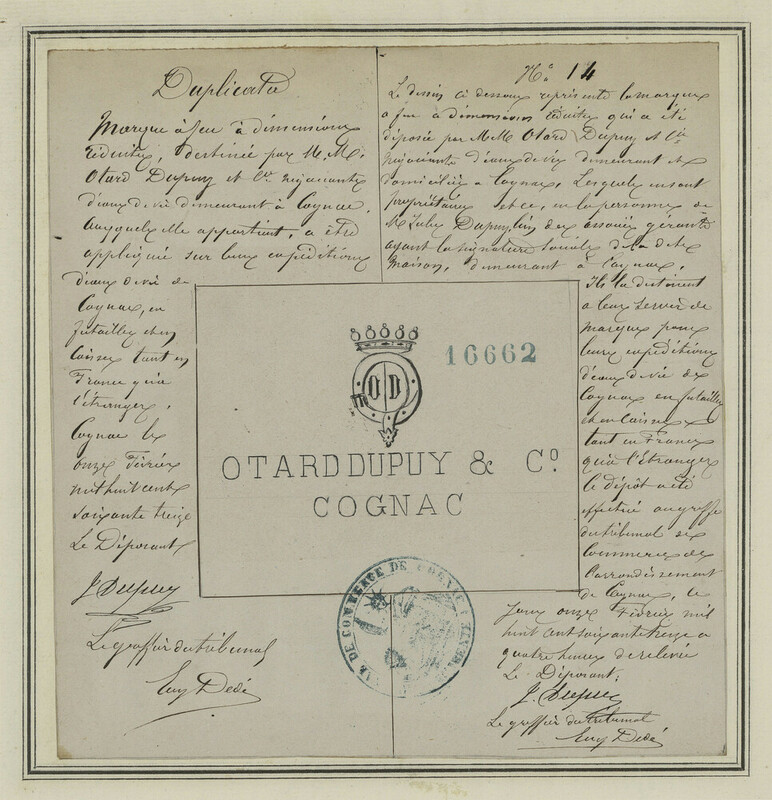 Duplicata
Marque à feu à dimensions
réduites, destinée par M.M.
Otard Dupuy et Cie négociants
d'eaux de vie demeurant à Cognac,
auxquels elle appartient, a être
appliquée sur leurs expéditions
d'eaux de vie de
Cognac, en
futailles et en
Caisses tant en
France qu'à
l'étranger.
Cognac le
onze Février
mil huit cent
soixante treize
Le Déposant
J. Dupuy
Le greffier du tribunal
Eug Dedé
No. 14
Le dessin ci dessous représente la marque
a feu a dimensions réduites qui a été
déposée par M.M. Otard Dupuy et Cie
négociants d'eaux de vie demeurant et
domiciliés a Cognac, lesquels en sont
propriétaires et ce, en la personne de
M. Jules Dupuy, l'un des associés gérants
ayant la signature sociale de la dite
maison, demeurant à Cognac,
Ils la destinent
a leur servir de
marque pour
leurs expéditions
d'eaux de vie de
Cognac en futailles
et en Caisses
tant en France
qu'a l'étranger
Le dépôt a été
effectué au greffe
du tribunal de
Commerce de
l'arrondissement
de Cognac, le
Jour onze Février mil
huit cent soixante treize a
quatre heures de relevée
Le Déposant;
J. Dupuy
Le greffier du tribunal
Eug Dedé
16662
O D
OTARD DUPUY & Co.
COGNAC
DE COMMERCE DE COGNAC